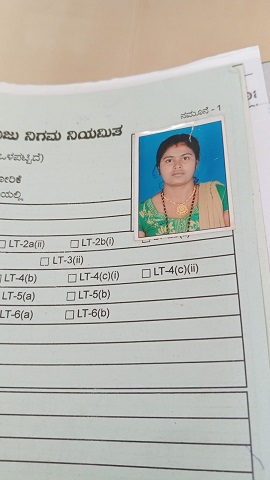 ನಮೂನೆ - 1
ನಿಗಮ ನಿಯಮಿತ
LT-2a(ii) LT-2b(i)
LT-3(ii)
LT-4(b) LT-4(c)(i) LT-4(c)(ii)
LT-5(a) LT-5(b)
LT-6(a) LT-6(b)